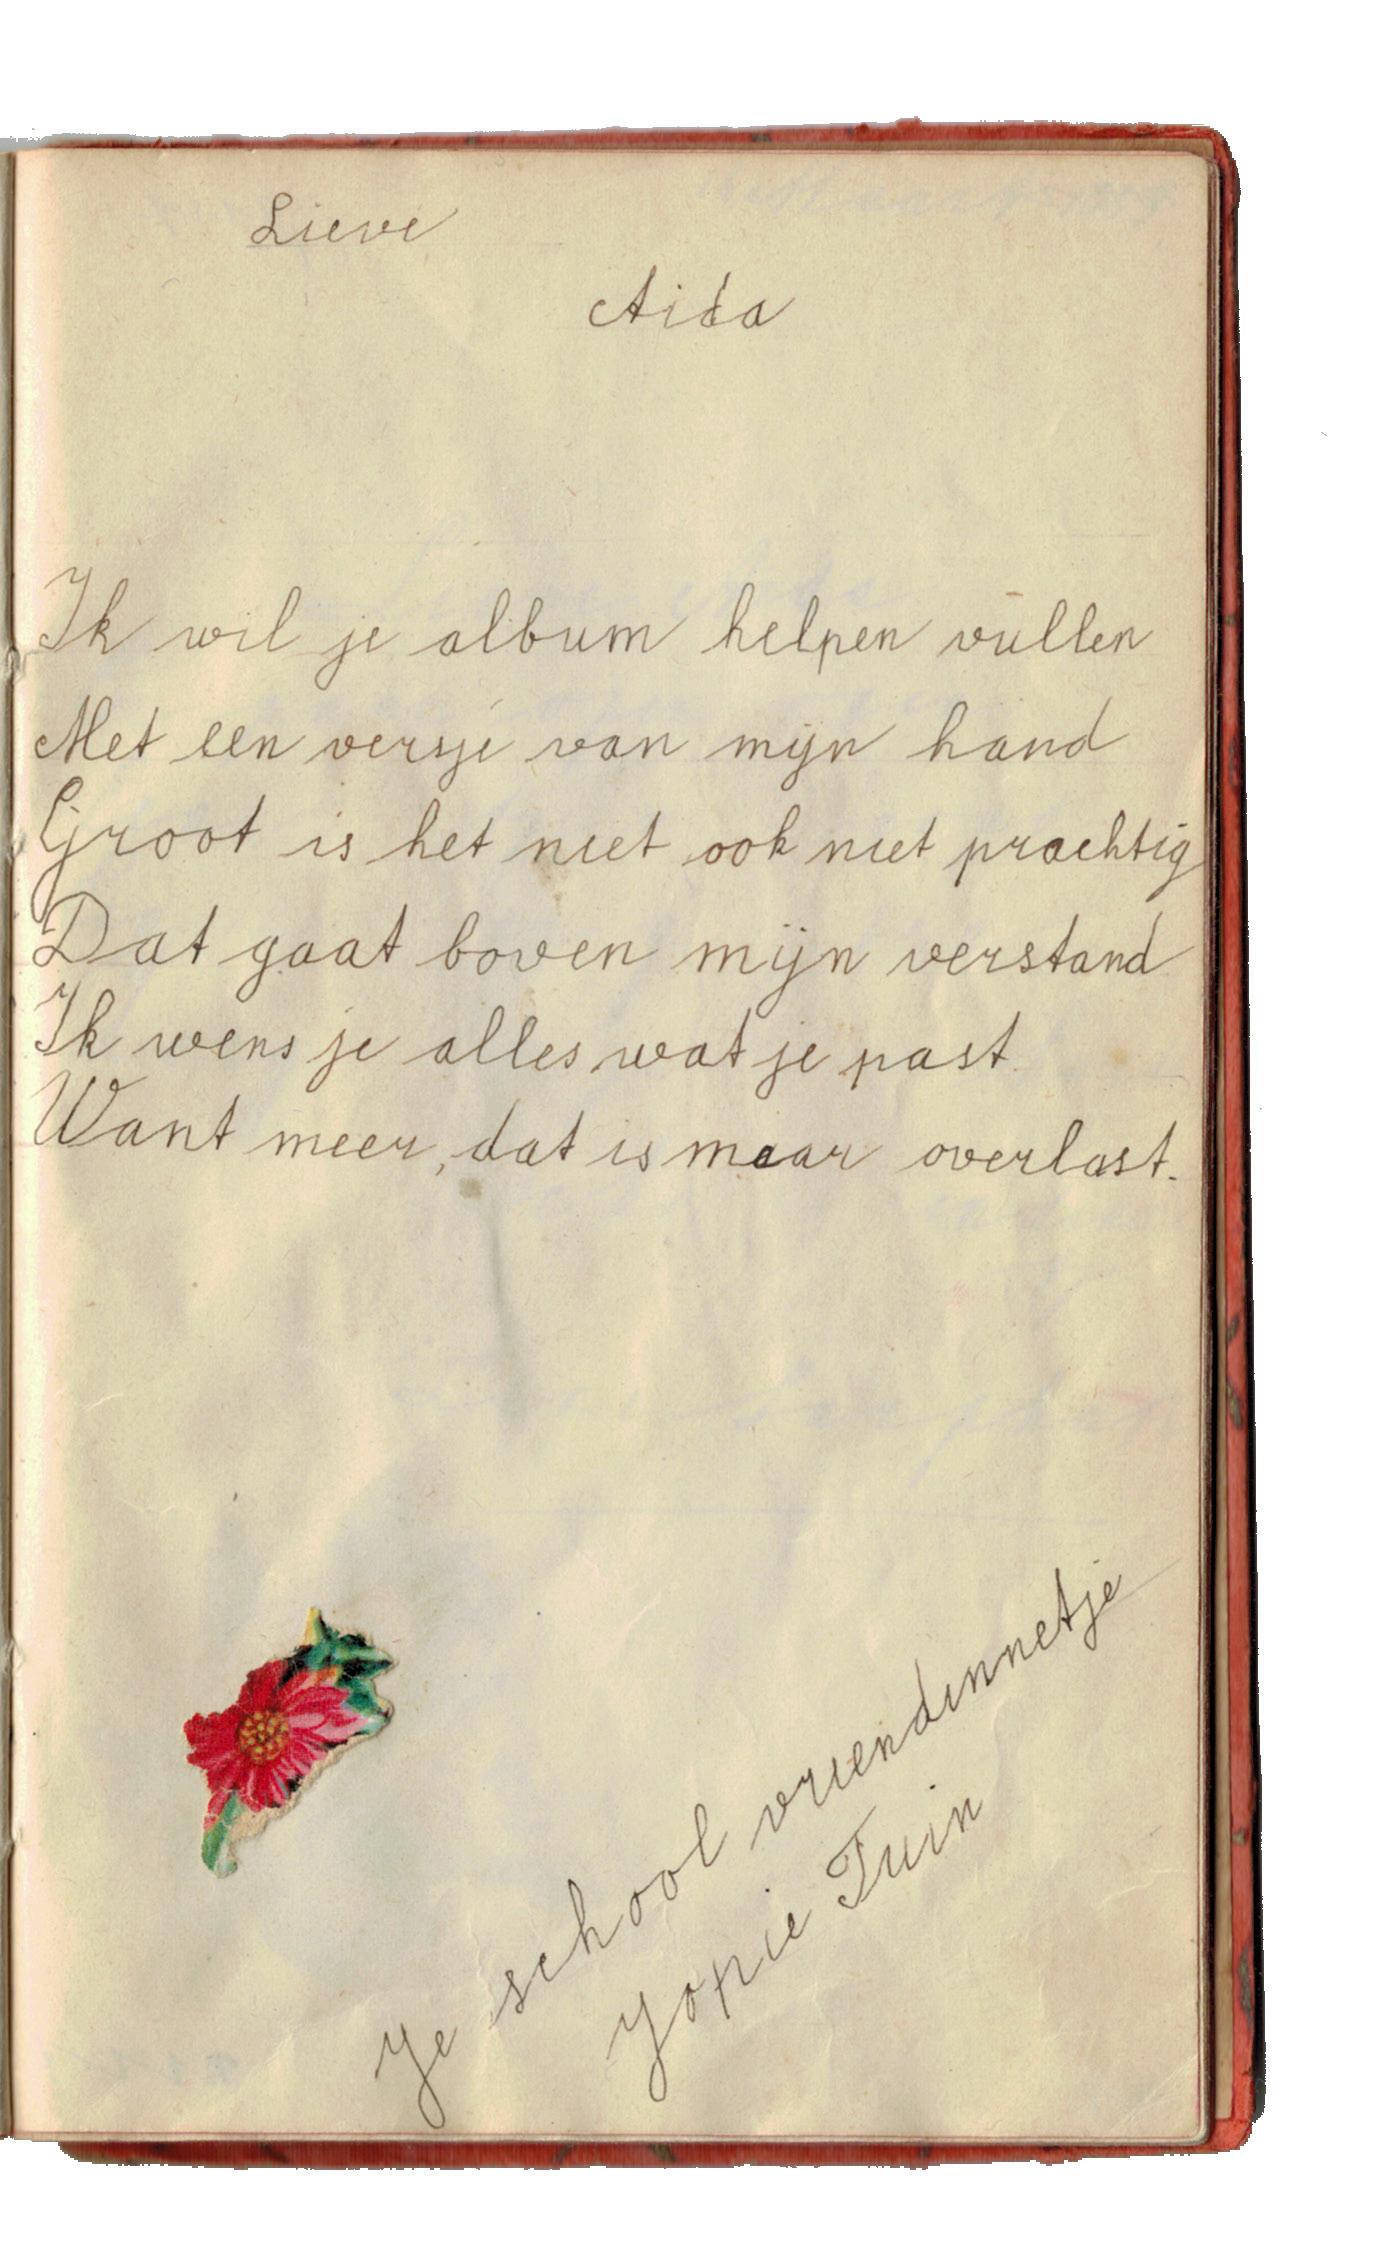 Lieve
Aida
Ik wil je album helpen vullen
Met een versje van mijn hand
Groot is het niet ook niet prachtig
Dat gaat boven mijn verstand
Ik wens je alles wat je past
Want meer, dat is maar overlast.
Je school vriendinnetje
Jopie Tuin